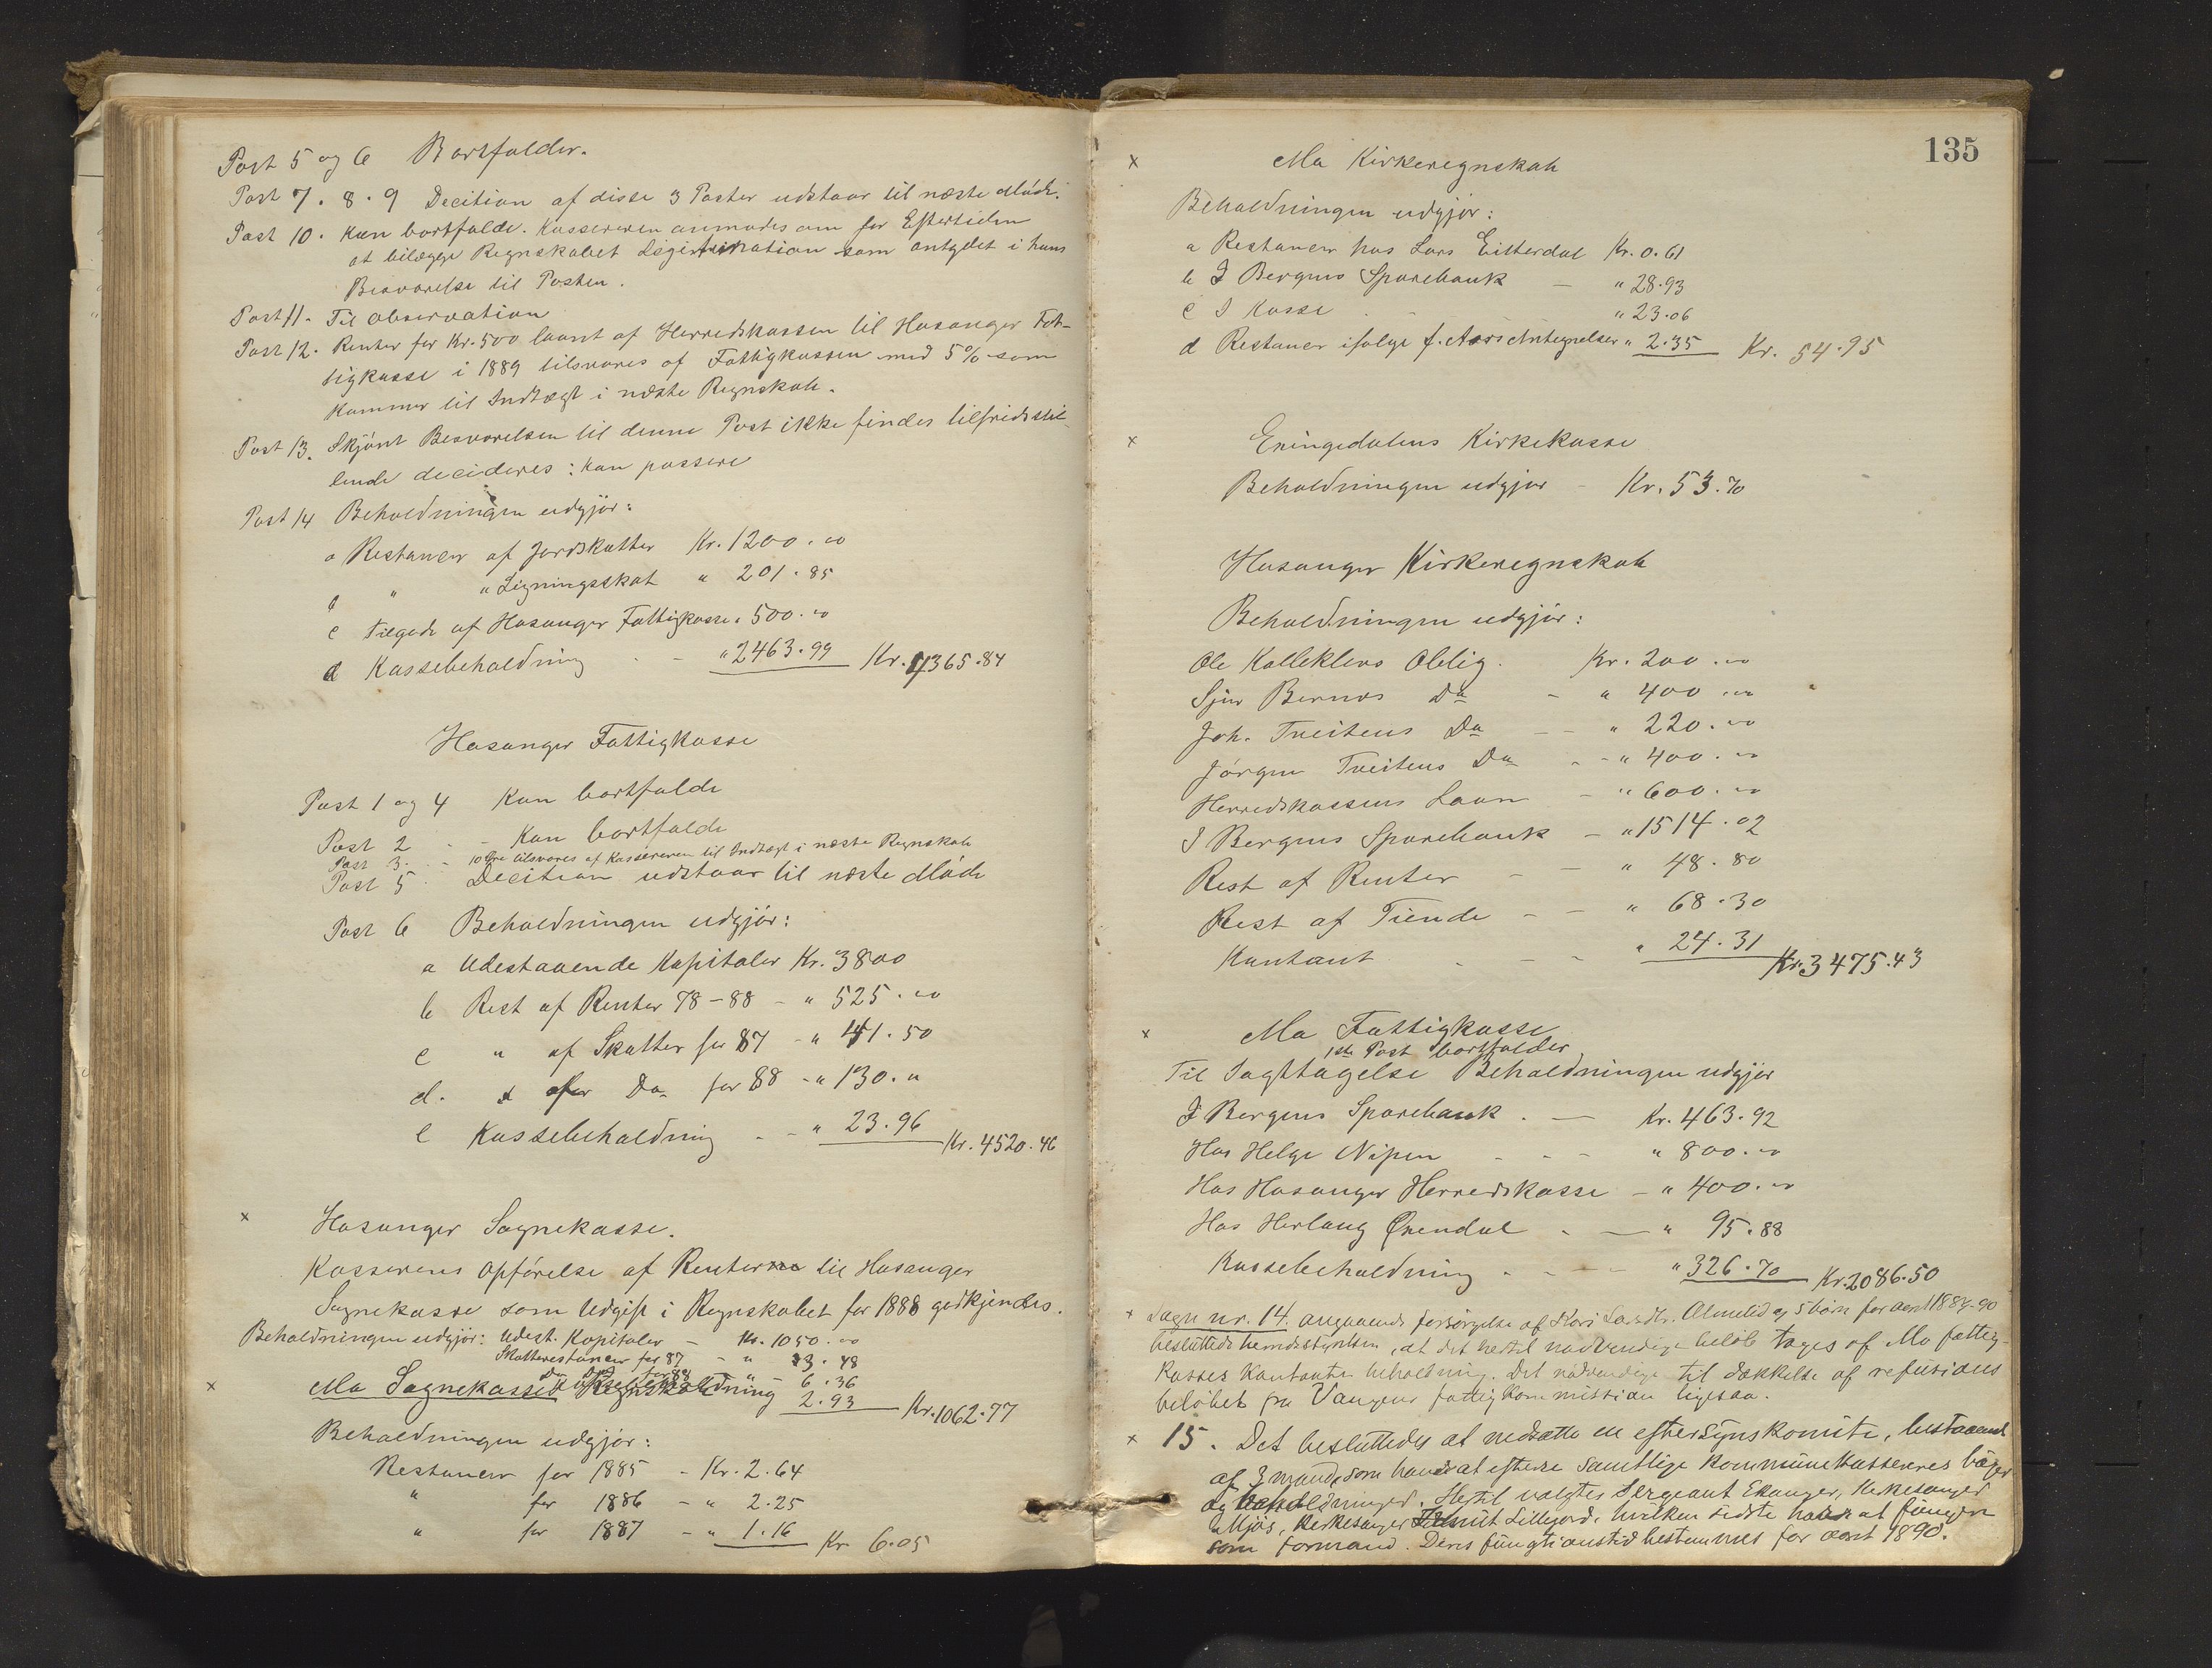 Post 5 og 6 Bortfalder.
Post 7. 8. 9 Decition af disse 3 Poster udstaar til næste Möde.
Post 10. Kan bortfalde. Kassereren anmodes om for Eftertiden
at bilægge Regnskabet Legitimation som antydet i hans
Besvarelse til Posten.
Post 11. Til observation
Post 12. Renter for Kr. 500 laant af Herredskassen til Hosanger Fat-
tigkasse i 1889 tilsvares af Fattigkassen med 5% som
kommer til Indtægt i næste Regnskab.
Post 13. Skjönt Besvarelsen til denne Post ikke findes tilfredsstil-
lende decideres: kan passere
Post 14 Beholdningen udgjör:
a Restancer af Jordskatter Kr. 1200.00
b " " Ligningsskat " 201.85
c Tilgode af Hosanger Fattigkasse " 500.00
d Kassebeholdning - " 2463.99 Kr. 4365.84
Hosanger Fattigkasse
Post 1 og 4 Kan bortfalde
Post 2 - Kan bortfalde
Post 3. - 10 Öre tilsvares af Kassereren til Indtægt i næste Regnskab
Post 5. Decition udstaar til næste Möde
Post 6 Beholdningen udgjör:
a Udestaaende Kapitaler Kr. 3800
b Rest af Renter 78-88 - " 525.00
c " af Skatter for 87 - " 41.50
d. " for Do for 88 - " 130."
e Kassebeholdning - - " 23.96 Kr. 4520.46
x Hosanger Sognekasse.
Kasserens Opförelse af Renter til Hosanger
Sognekasse som Udgift i Regnskabet for 1888 godkjendes.
Beholdningen udgjör: Udest. Kapitaler - Kr. 1050.00
Skatterestancer for 87 - " 3.48
do do for 88 - " - 6.36
x Mo Sognekasse Kassebeholdning 2.93 Kr. 1062.77
Beholdningen udgjör:
Restancer for 1885 - Kr. 2.64
" for 1886 - " 2.25
" for 1887 - " 1.16 Kr 6.05
135
x Mo Kirkeregnskab
Beholdningen udgjör:
a Restancer hos Lars Eitterdal Kr. 0.61
b I Bergens Sparebank - " 28.93
c I Kasse - " 23.06
d Restancer ifölge f. Aars Antegnelser " 2.35 Kr. 54.95
x Exingedalens Kirkekasse
Beholdningen udgjör - Kr. 53.70
Hosanger Kirkeregnskab
Beholdningen udgjör:
Ole Kalleklevs Oblig. Kr. 200.00
Sjur Bernes Do - " 400.00
Joh. Tveitens Do - - " 220.00
Jörgen Tveitens Do - - " 400.00
Herredskassens Laan - " 600.00
I Bergens Sparebank - " 1514.02
Rest af Renter - - " 48.80
Rest af Tiende - - " 68.30
Kontant - - - " 24.31 Kr. 3475.43
x Mo Fattigkasse
1ste Post bortfalder
Til Iagttagelse Beholdningen udgjör
I Bergens Sparebank - Kr. 463.92
Hos Helge Nipen - - - " 800.00
Hos Hosanger Herredskasse - " 400.00
Hos Herlaug Öxendal - - " 95.88
Kassebeholdning - - - " 326.70 Kr. 2086.50
x Sagn nr. 14. angaaende forsörgelse af Kari Larsdtr. Olmelid og 5 börn for aaret 1889-90
besluttede herredsstyrelsen, at det hertil nödvendige belöb tages af Mo fattig-
kasses kontante beholdning. Det nödvendige til dækkelse af refusions
belöbet fra Vangens fattigkommission ligesaa.
x 15. Det besluttedes at nedsætte en eftersynskomite, bestaaende
af 3 mand, som haver at efterse samtlige kommunekasserers böger
og beholdninger. Hertil valgtes Sergeant Ekanger, Kirkesanger
Mjös, Kirkesanger Lillejord, hvilken sidste haver at fungere
som formand. Deres fungtionstid bestemmes for aaret 1890.